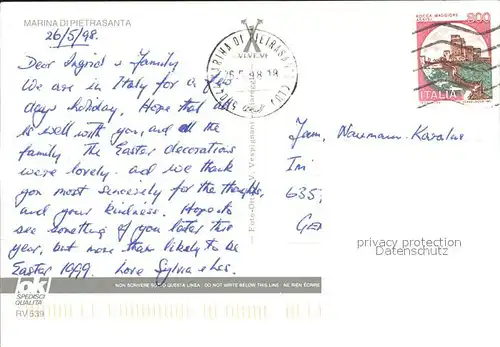 MARINA DI PIETRASANTA
26/5/98.
Dear Ingrid & family
We are in Italy for a few
days holiday. Hope that all
is well with you, and all the
family. The Easter decorations
were lovely - and we thank
you most sincerely for the thoughts,
and your kindness. Hope to
see something of you later this
year, but more than likely to be
Easter 1999. Love Sylvia & Les.
26.5.98.18
ROCCA MAGGIORE
ITALIA
Fam. Naumann-Karalus
Im
635
GE
privacy protection
Datenschutz
ok
SPEDISCI
QUALITÀ
RV 539
NON SCRIVERE SOTTO QUESTA LINEA / DO NOT WRITE BELOW THIS LINE / NE RIEN ÉCRIRE